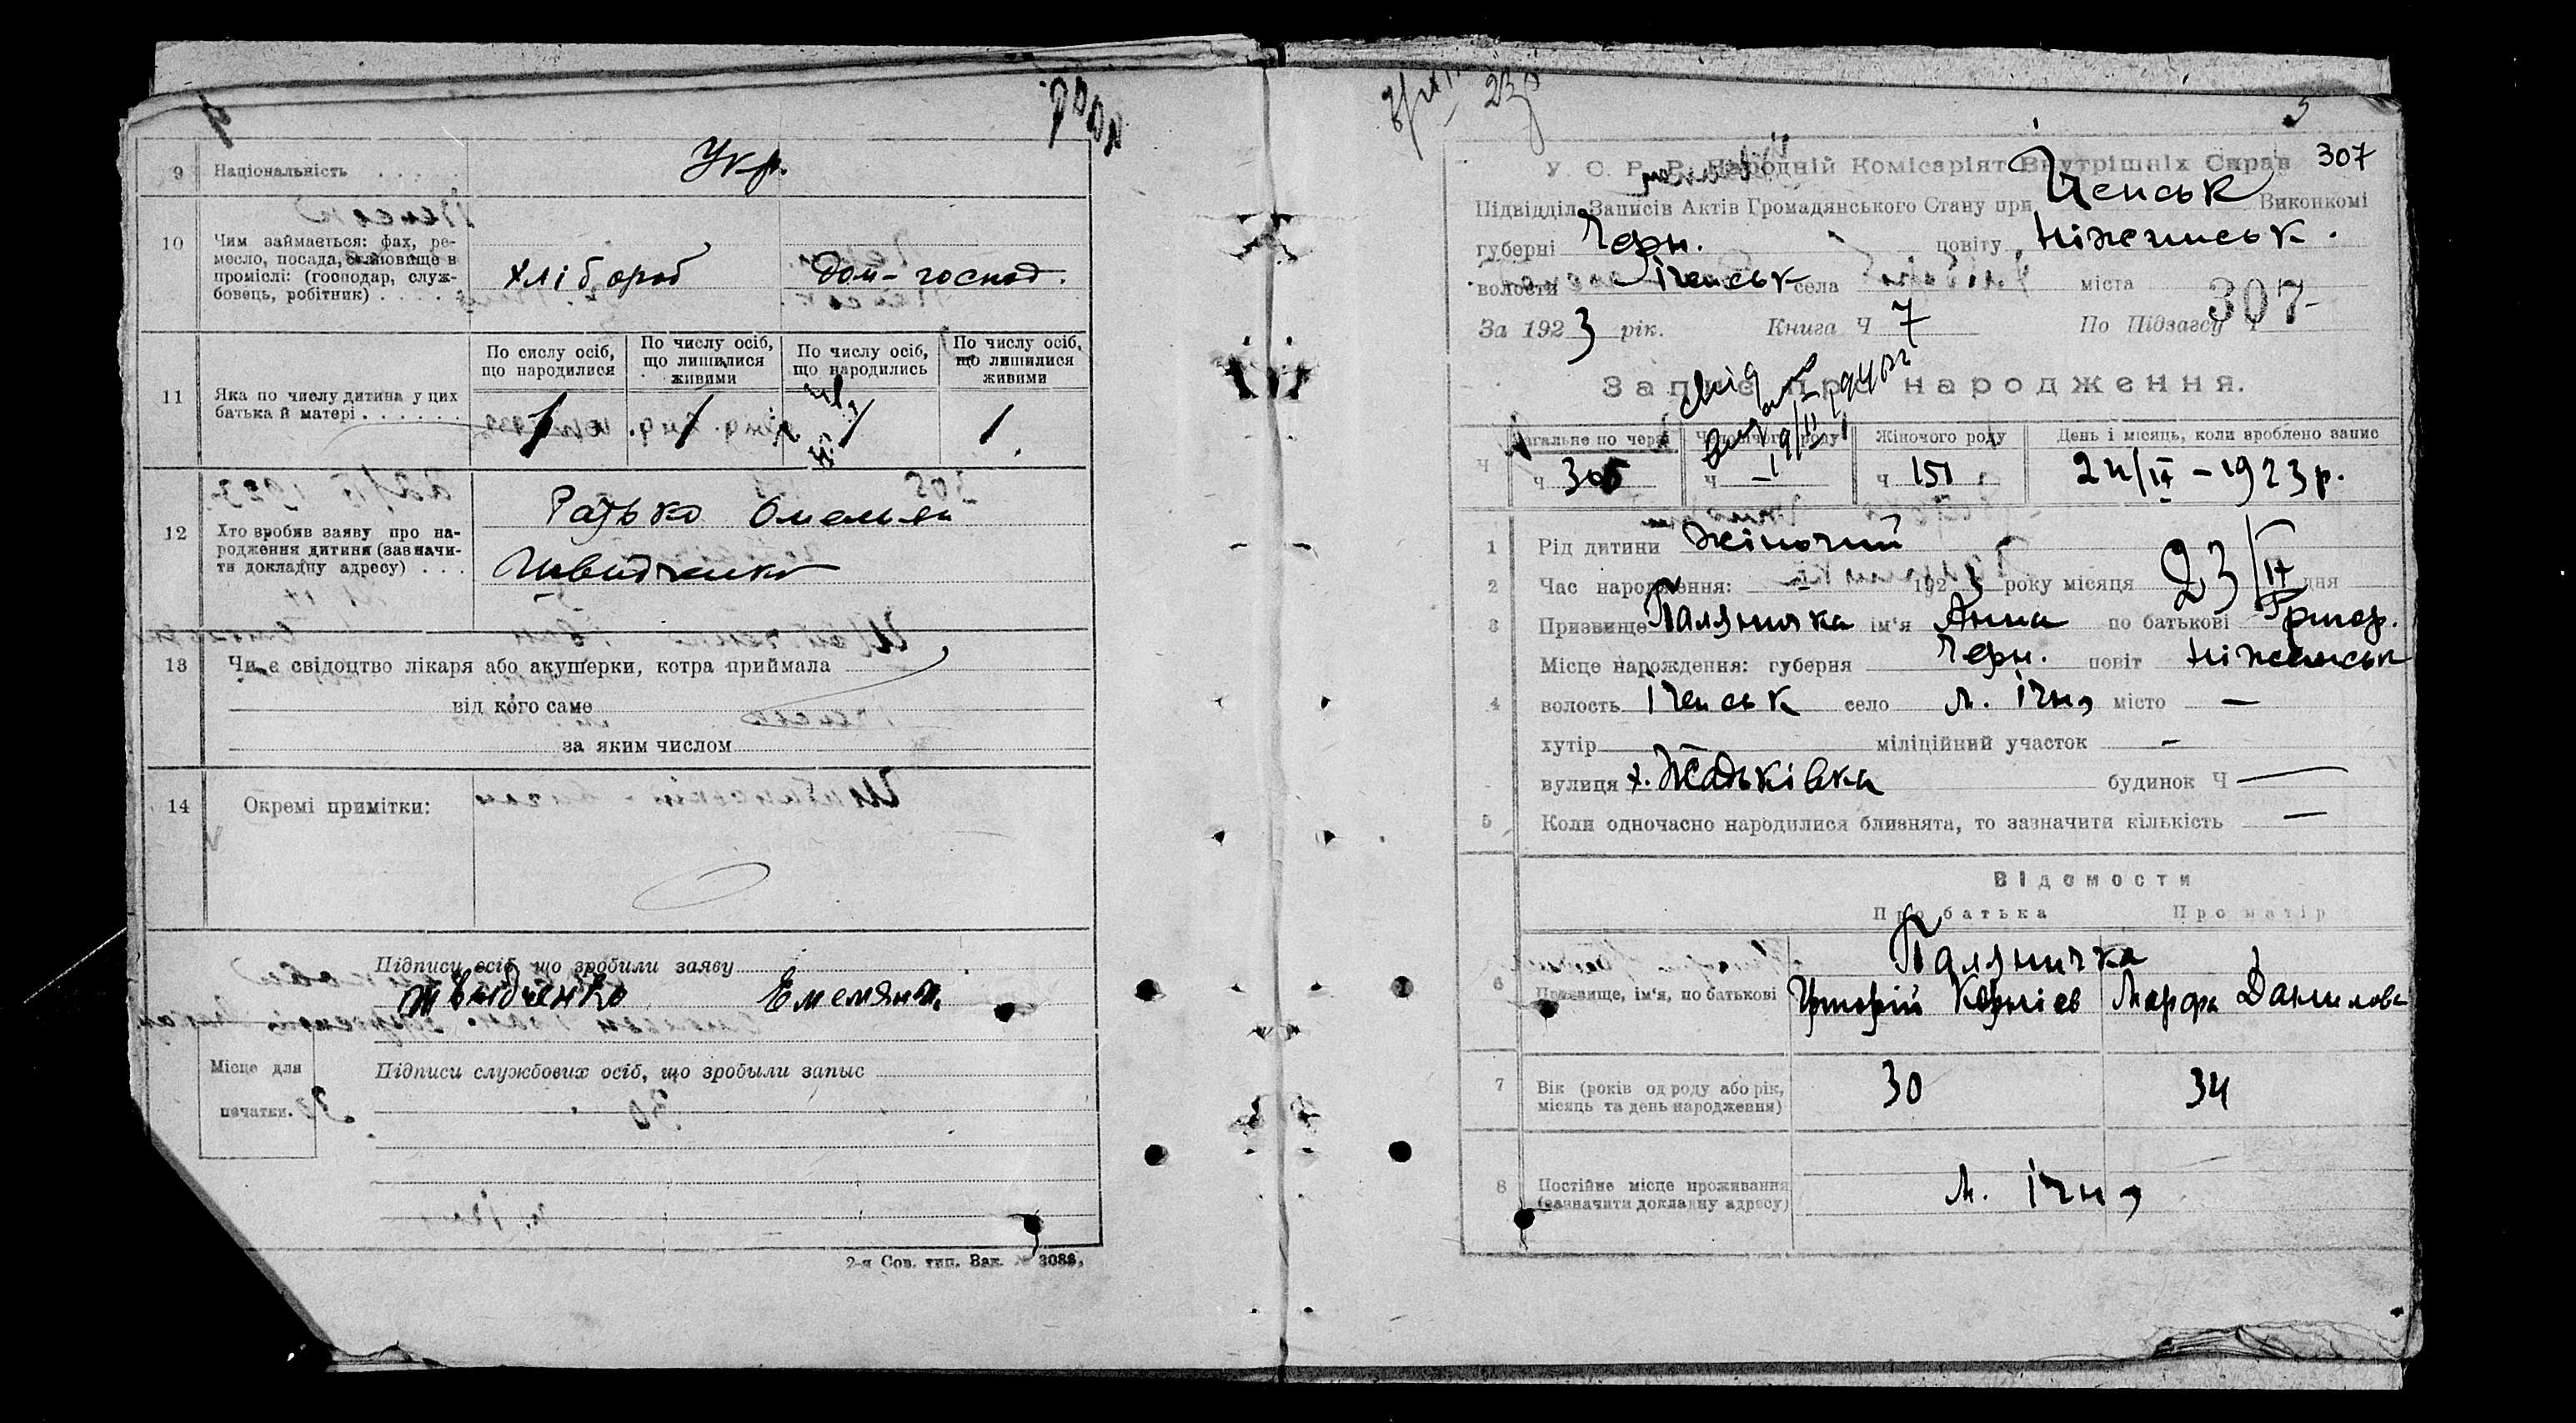 9 Національність . . . . . Укр.
10 Чим займається: фах, ре-
месло, посада, становище в
проміслі: (господар, служ-
бовець, робітник) . . . .
хлібороб дом-господ.
11 Яка по числу дитина у цих
батька й матері . . . . . .
По сислу осіб,
що народилися
По числу осіб,
що лишилися
живими
По числу осіб,
що народились
По числу осіб,
що лишилися
живими
1 1 1 1
12 Хто вробив заяву про на-
родження дитини (зазначи-
ти докладну адресу) . . .
Омелян
Швидченко
13 Чи є свідоцтво лікаря або акушерки, котра приймала
від кого саме
за яким числом
14 Окремі примітки:
Підписи осіб що зробили заяву
Швыдченко Емемян
Місце для
печатки.
Підписи службових осіб, що зробыли запыс
2-я Сов. тип. Зак. 3088,
307
У. С. Р. Р. Народній Комісаріят Внутрішніх Справ
Підвідділ Записів Актів Громадянського Стану при Іченськ Виконкомі
губерні Черн. повіту Ніженськ.
волости Іченськ села міста
307
За 1923 рік. Книга Ч 7 По Підзагсу Ч
Запис про народження.
Загальне по черзі Чоловічого роду Жіночого роду День і місяць, коли вроблено запис
Ч ч 305 ч — ч 151 24/IV – 1923 р.
1 Рід дитини Жіночий
2 Час народження: 1923 року місяця 23/IV дня
3 Призвище Паляничка ім'я Анна по батькові Григор.
4 Місце нарождення: губерня Черн. повіт Ніженськ
волость Іченськ село м. Ічня місто —
хутір міліційний участок —
вулиця х. Жадьківка будинок Ч —
5 Коли одночасно народилися близнята, то зазначити кількість —
Відомости
Про батька Про матір
6 Призвище, ім'я, по батькові
Паляничка
Григорій Корніев Марфа Данилова
7 Вік (років од роду або рік,
місяць та день народження)
30 34
8 Постійне місце проживання
(зазначити докладну адресу)
м. Ічня